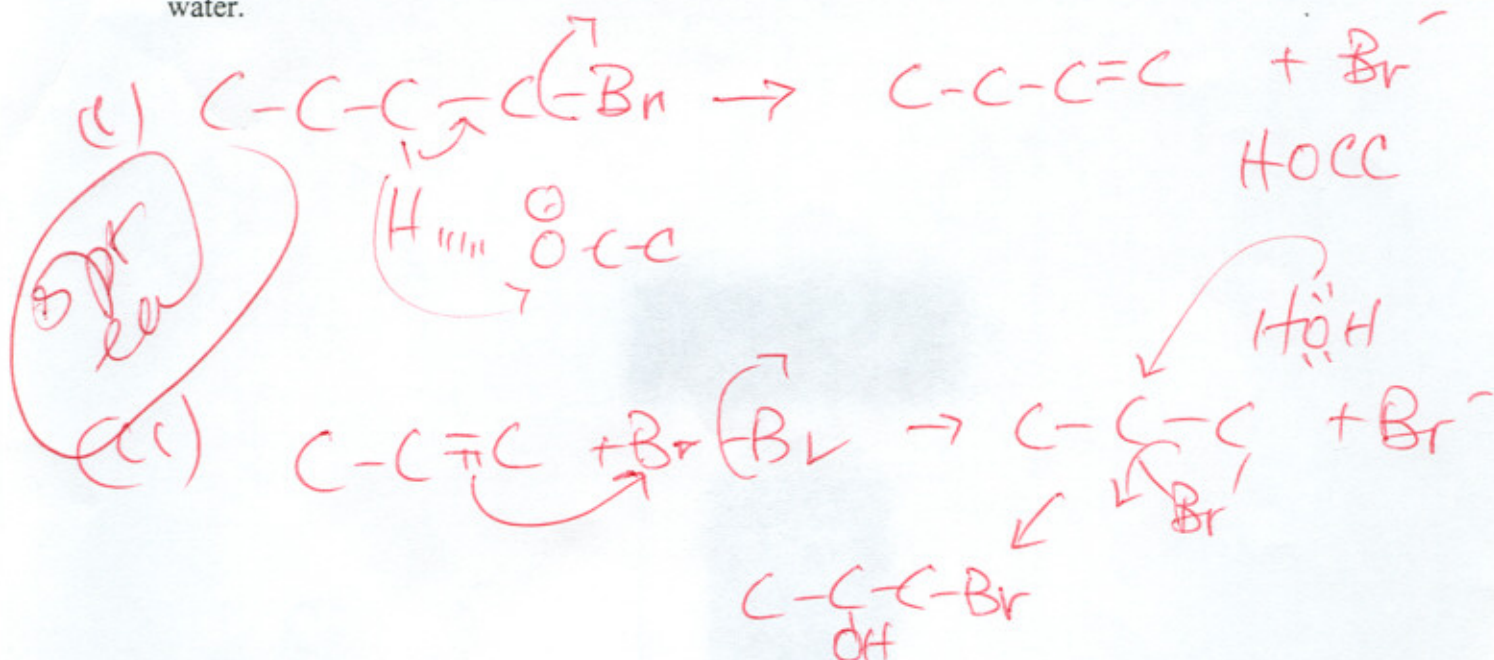 water.
(1) C-C-C-C-Br → C-C-C=C + Br⁻
HOCC
H ıııı O⊖ C-C
8 pt
ea
HÖH
C-C=C + Br-Br → C-C-C + Br⁻
π
Br
C-C-C-Br
OH